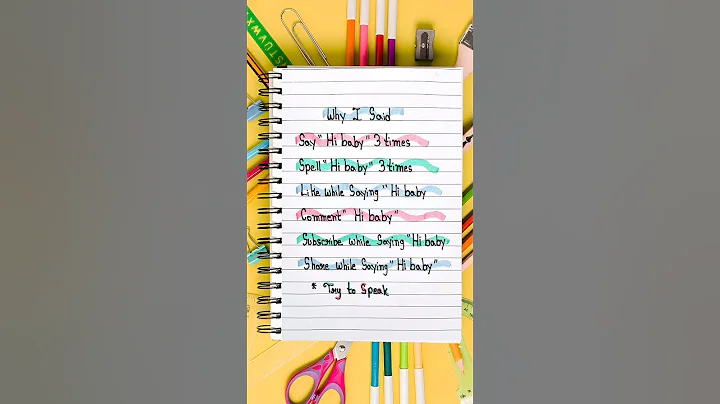 STUVWX
Why I Said
Say" Hi baby" 3 times
Spell" Hi baby" 3 times
Like while Saying "Hi baby
Comment" Hi baby"
Subscribe while Saying "Hi baby
Share while Saying "Hi baby"
* Try to Speak